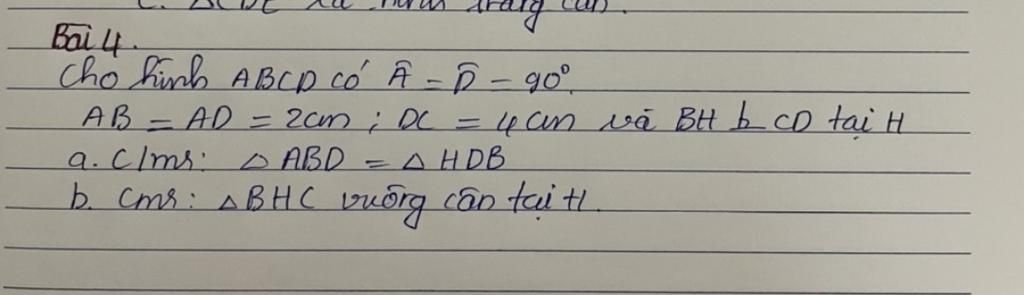 c. △CDE là hình thang cân.
Bài 4.
Cho hình ABCD có Â = D̂ = 90°.
AB = AD = 2cm ; DC = 4cm và BH ⊥ CD tại H
a. C/mr: △ABD = △HDB
b. Cmr: △BHC vuông cân tại H.